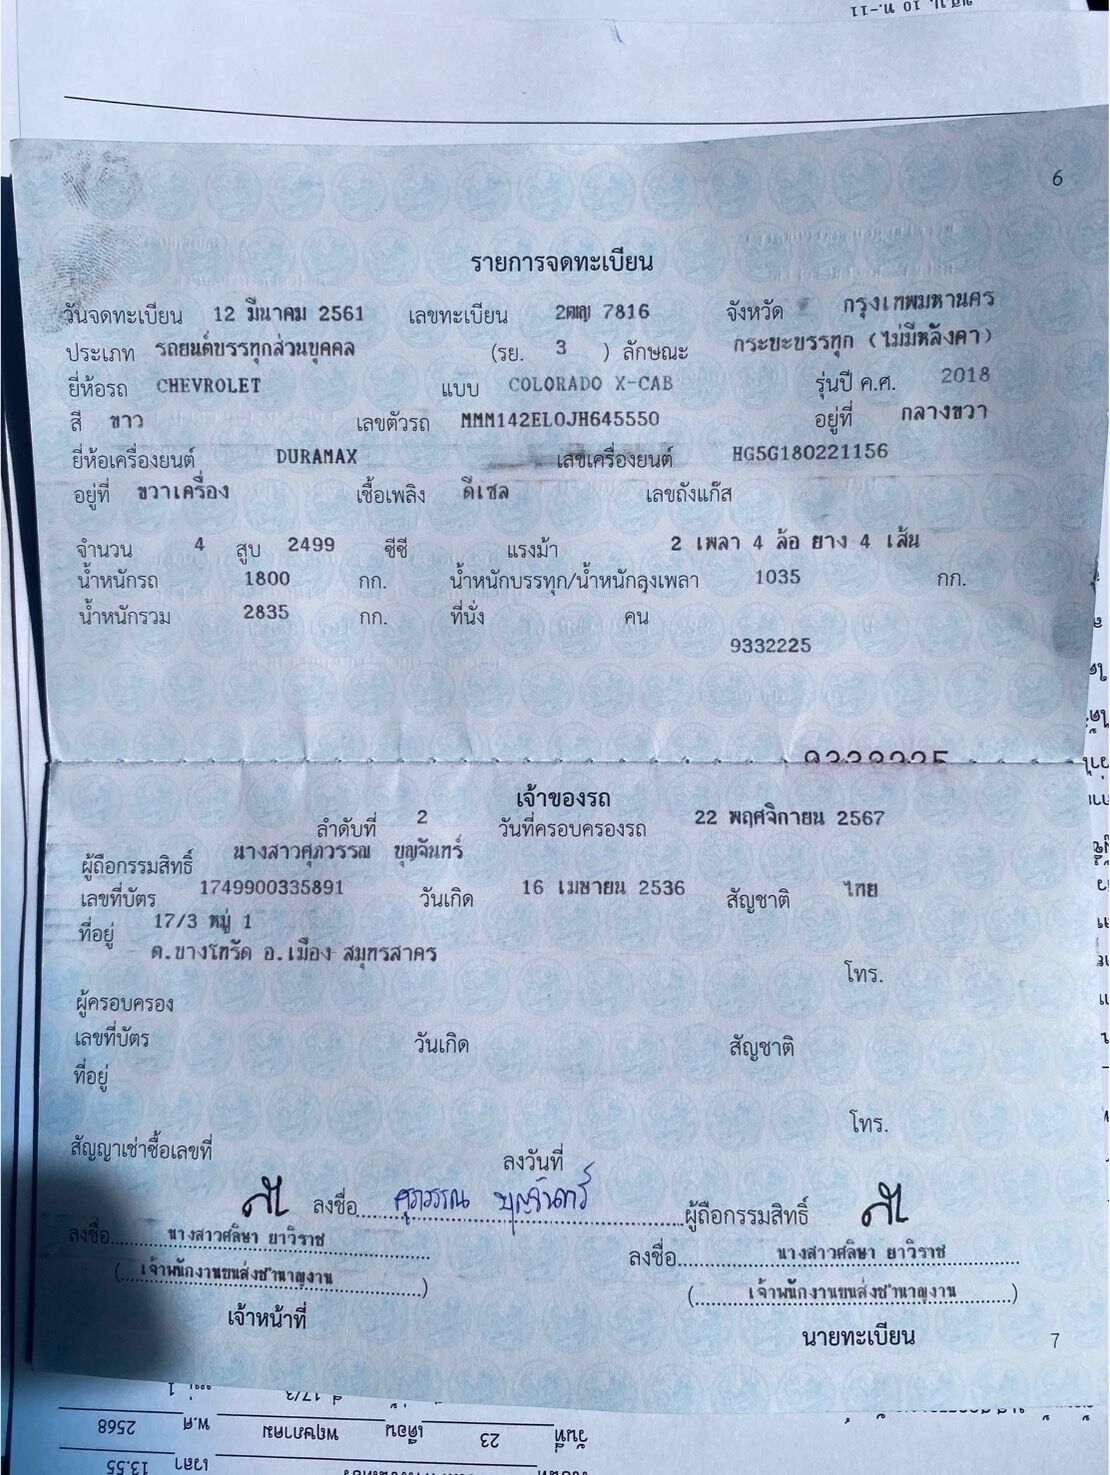 6
รายการจดทะเบียน
วันจดทะเบียน 12 มีนาคม 2561 เลขทะเบียน 2ฒญ 7816 จังหวัด กรุงเทพมหานคร
ประเภท รถยนต์บรรทุกส่วนบุคคล (รย. 3 ) ลักษณะ กระบะบรรทุก (ไม่มีหลังคา)
ยี่ห้อรถ CHEVROLET แบบ COLORADO X-CAB รุ่นปี ค.ศ. 2018
สี ขาว เลขตัวรถ MMM142EL0JH645550 อยู่ที่ กลางขวา
ยี่ห้อเครื่องยนต์ DURAMAX เลขเครื่องยนต์ HG5G180221156
อยู่ที่ ขวาเครื่อง เชื้อเพลิง ดีเซล เลขถังแก๊ส
จำนวน 4 สูบ 2499 ซีซี แรงม้า 2 เพลา 4 ล้อ ยาง 4 เส้น
น้ำหนักรถ 1800 กก. น้ำหนักบรรทุก/น้ำหนักลงเพลา 1035 กก.
น้ำหนักรวม 2835 กก. ที่นั่ง คน
9332225
เจ้าของรถ
ลำดับที่ 2 วันที่ครอบครองรถ 22 พฤศจิกายน 2567
ผู้ถือกรรมสิทธิ์ นางสาวศุภวรรณ บุญจันทร์
เลขที่บัตร 1749900335891 วันเกิด 16 เมษายน 2536 สัญชาติ ไทย
ที่อยู่ 17/3 หมู่ 1
ต.บางโทรัด อ.เมือง สมุทรสาคร
โทร.
ผู้ครอบครอง
เลขที่บัตร วันเกิด สัญชาติ
ที่อยู่
โทร.
สัญญาเช่าซื้อเลขที่ ลงวันที่
ลงชื่อ ศุภวรรณ บุญจันทร์ ผู้ถือกรรมสิทธิ์
ลงชื่อ นางสาวศลิษา ยาวิราช ลงชื่อ นางสาวศลิษา ยาวิราช
(เจ้าพนักงานขนส่งชำนาญงาน) (เจ้าพนักงานขนส่งชำนาญงาน)
เจ้าหน้าที่ นายทะเบียน
7
วันที่ 23 เดือน พฤษภาคม พ.ศ. 2568
เวลา 13.55